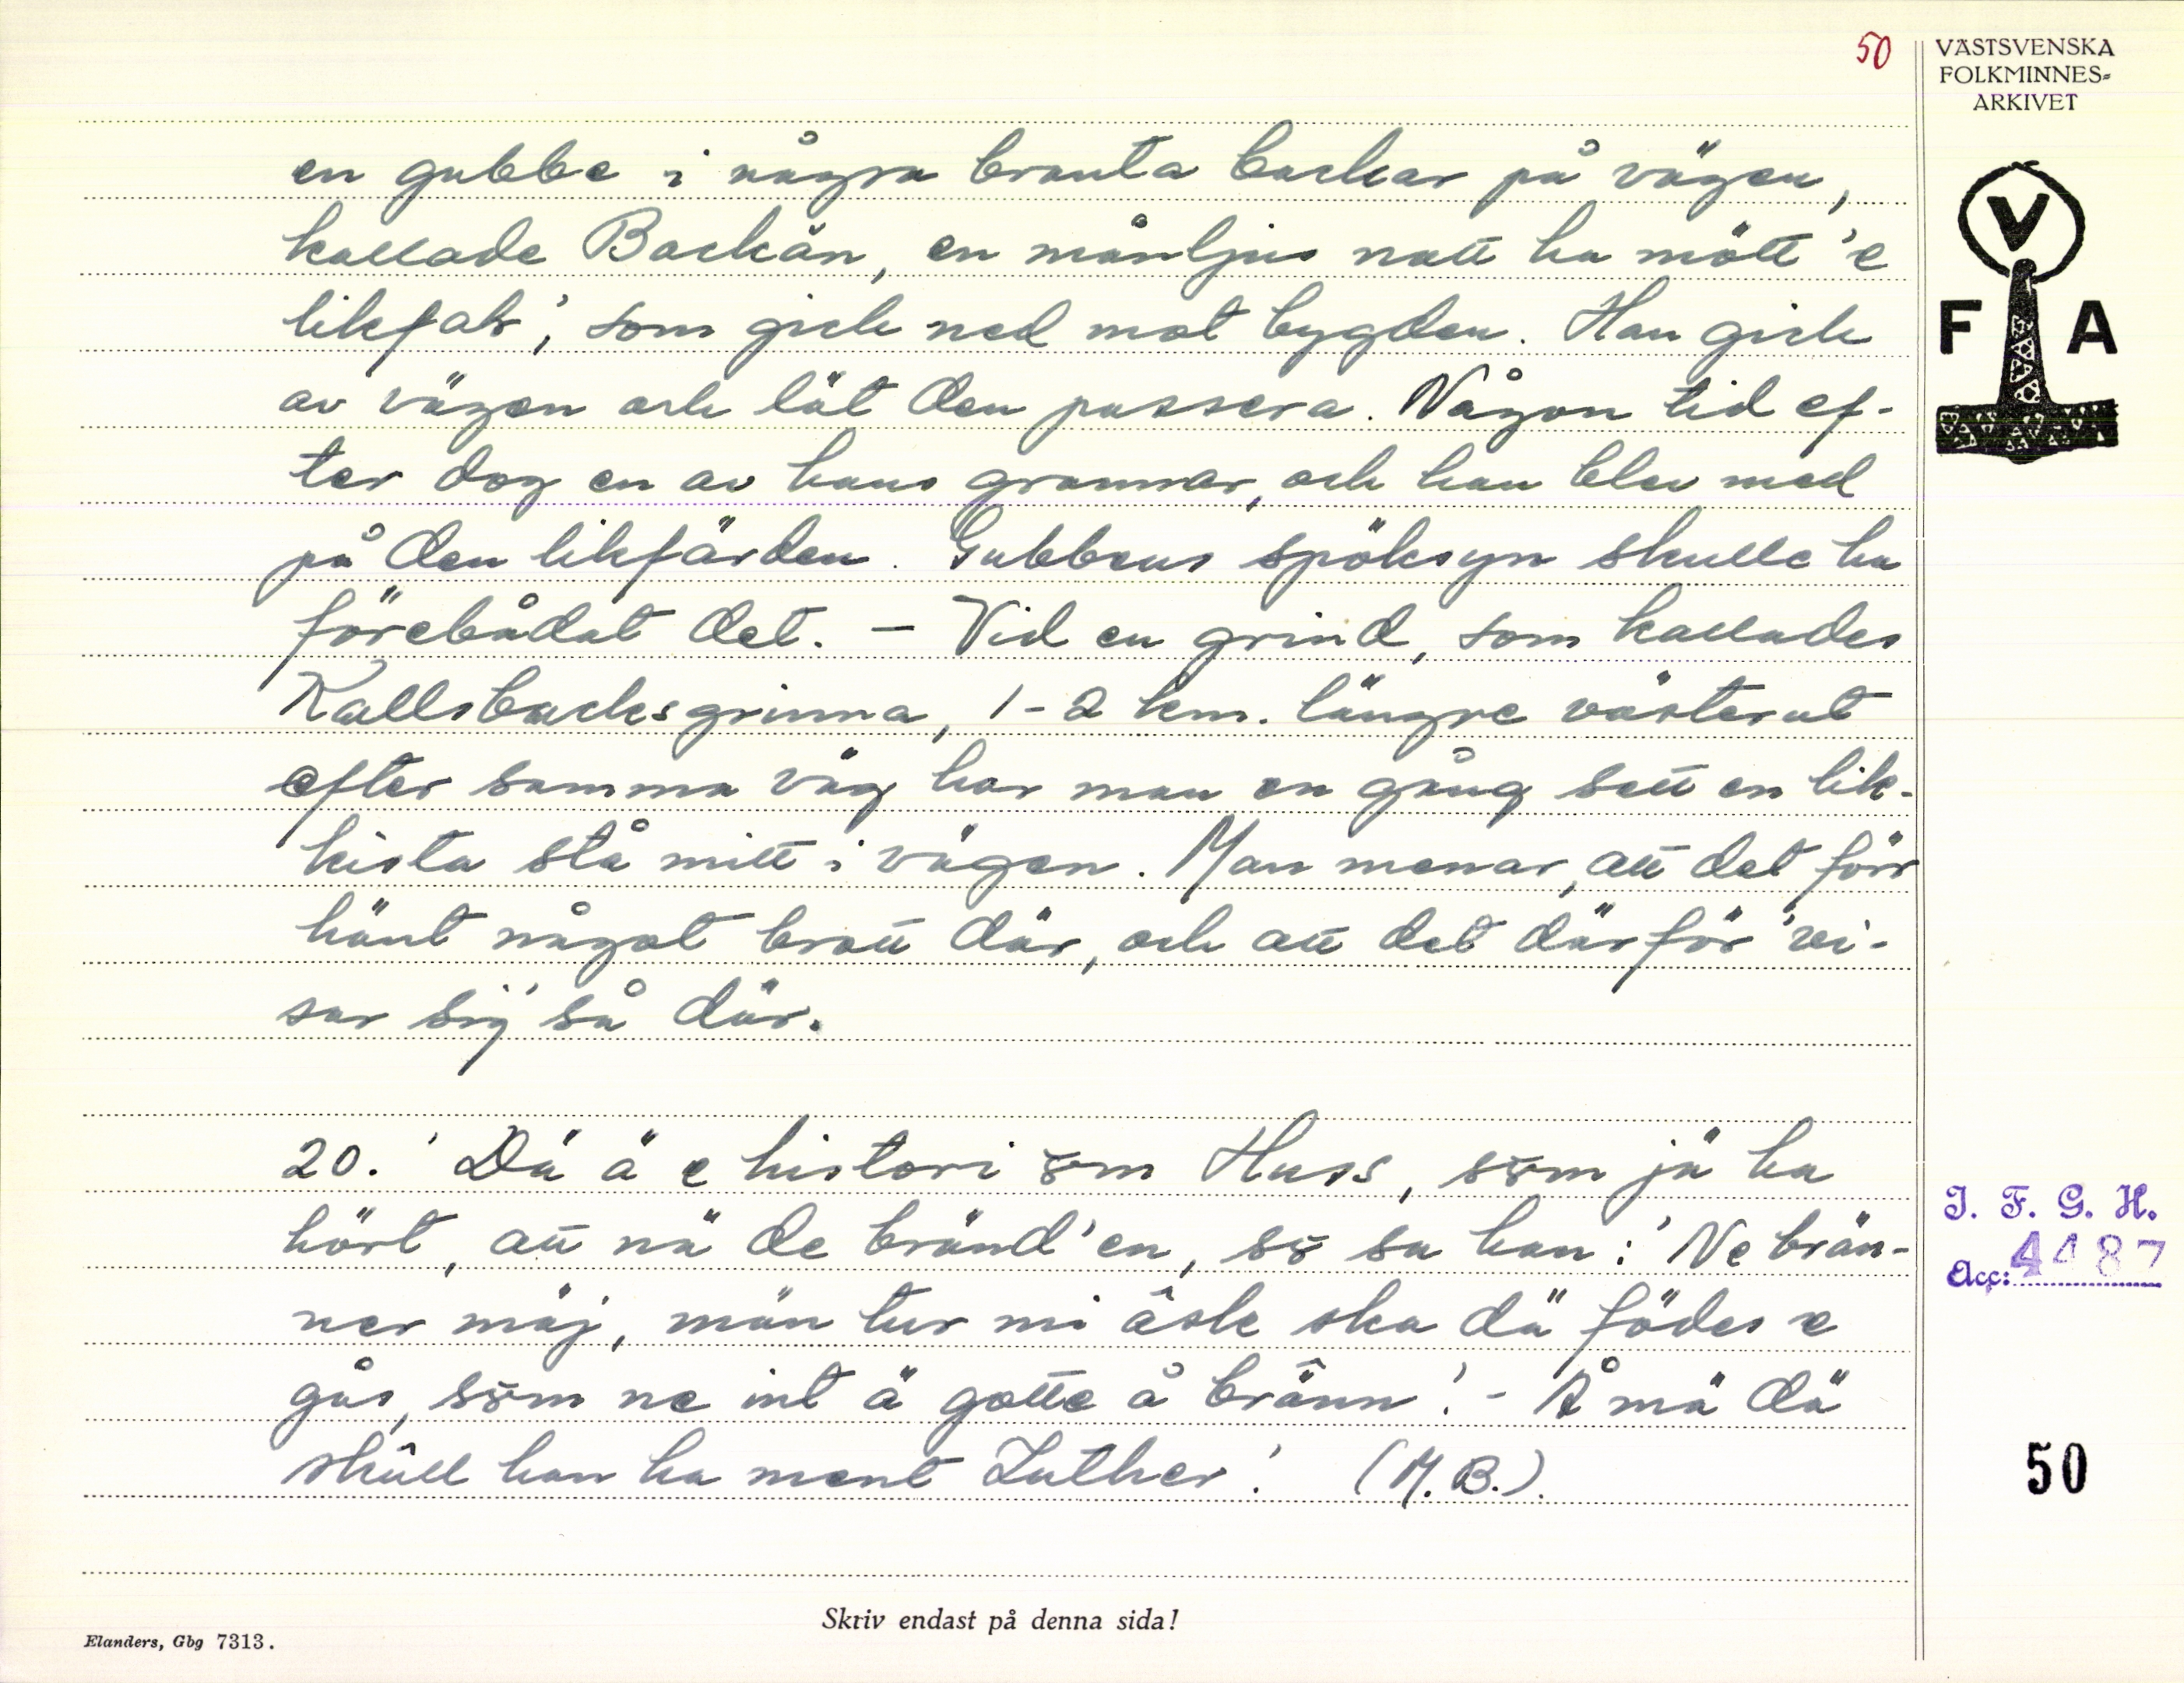 50
VÄSTSVENSKA
FOLKMINNES-
ARKIVET
V
F A
en gubbe i några branta backar på vägen,
kallade Backân, en månljus natt ha mött 'e
likfär', som gick ned mot bygden. Han gick
av vägen och lät den passera. Någon tid ef-
ter dog en av hans grannar, och han blev med
på den likfärden. Gubbens spöksyn skulle ha
förebådat det. – Vid en grind, som kallades
Kallsbacksgrinna, 1-2 km. längre västerut
efter samma väg har man en gång sett en lik-
kista stå mitt i vägen. Man menar, att det förr
hänt något bratt där, och att det därför 'vi-
sar sij' så där.
20. 'Dä ä e histori ơ̆m Huss, sơ̆m jä ha
hört, att nä de bränd'en, sơ̆ sa han: 'Ne brän-
ner mäj, män tur mi âsk ska dä födes e
gås, sơ̆m ne int ä gotte å brânn'. - Å mä dä
skûll han ha ment Luther'. (M.B.).
I. F. G. H.
Acc: 4487
50
Skriv endast på denna sida!
Elanders, Gbg 7313.